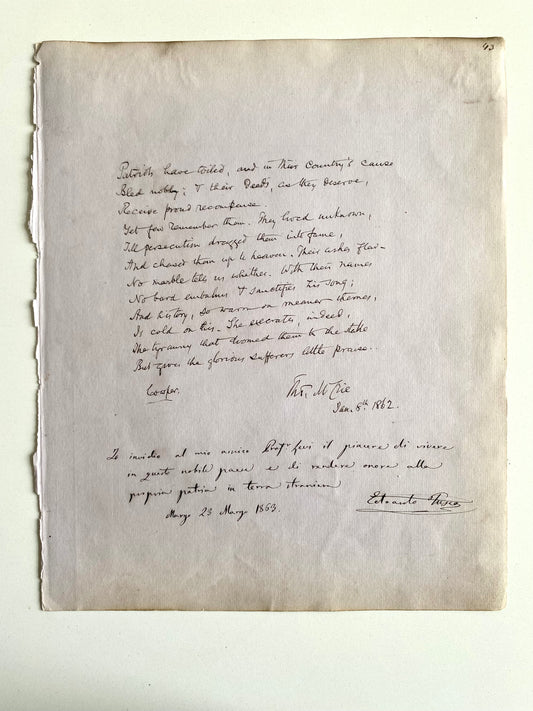 43
Patriots have toiled, and in their Country's cause
Bled nobly; & their Deeds, as they deserve,
Receive proud recompense
Yet few remember them. They lived unknown,
Till persecution dragged them into fame,
And chased them up to heaven. Their ashes flew—
No marble tells us whither. With their names
No bard embalms & sanctifies his song;
And history, so warm on meaner themes,
Is cold on this. She execrates, indeed,
The tyranny that doomed them to the stake
But gives the glorious sufferers little praise..
Cowper.
Thos. McCrie
Jan. 8th 1862.
Io invidio al mio amico Profr. Levi il piacere di vivere
in questo nobile paese e di rendere onore alla
propria patria in terra straniera
23 Marzo 1863.
Edoardo Fusco